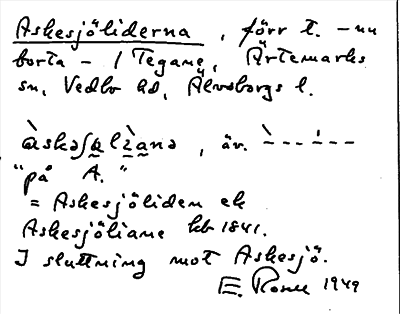 Askesjöliderna, förr t. - nu
borta - / Tegane, Ärtemarks
sn, Vedbo hd, Älvsborgs l.
àskəʃɵlìanə, äv. `--- '---
"på A."
= Askesjöliden ek
Askesjöliane hb 1841.
I sluttning mot Askesjö.
E. 1949